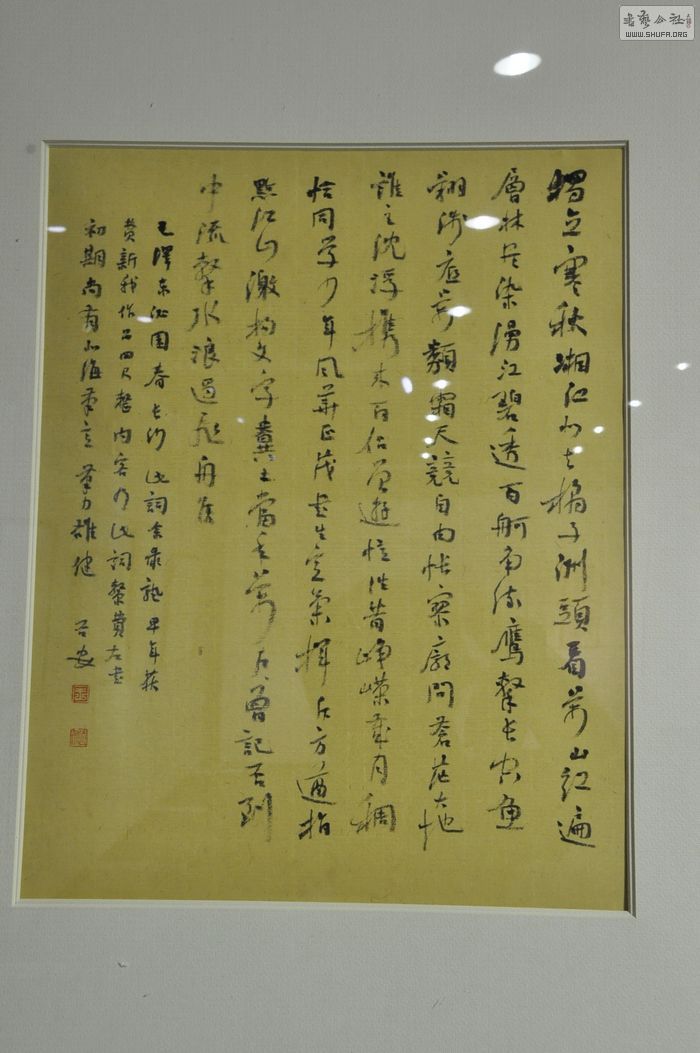 獨立寒秋湘江北去橘子洲頭看萬山紅遍
層林盡染漫江碧透百舸爭流鷹擊長空魚
翔淺底萬類霜天競自由悵寥廓問蒼茫大地
誰主沈浮攜來百侶曾遊憶往昔崢嶸歲月稠
恰同學少年風華正茂書生意氣揮斥方遒指
點江山激揚文字糞土當年萬戶侯曾記否到
中流擊水浪遏飛舟
毛澤東沁園春長沙此詞余最熟早年獲
費新我作品四尺整內容乃此詞繫費左書
初期尚有北海筆意筆力雄健
WWW.SHUFA.ORG